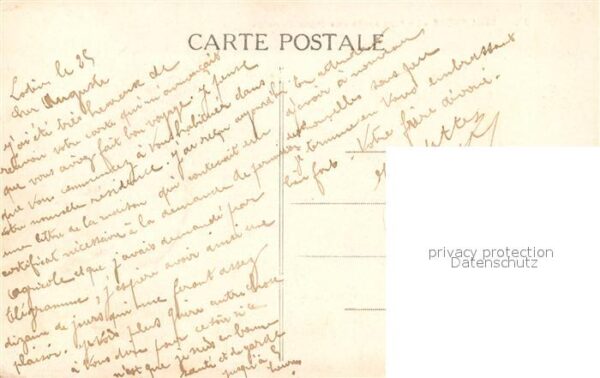 CARTE POSTALE
Lodève le 25
Cher Auguste
J'ai été très heureux de
recevoir votre carte qui m'annonçait
que vous aviez fait bon voyage. Je pense
que vous commencez à vous habituer dans
votre nouvelle résidence. J'ai reçu aujourd'hui
une lettre de la maison qui contenait un
certificat nécessaire à la demande de permission
agricole et que j'avais demandé par
télégramme, j'espère avoir ainsi une
dizaine de jours qui me feront assez
plaisir. plus guère autre chose
à vous dire pour ce soir si ce
n'est que je suis en bonne
santé et de garde
jusqu'à 5
heures
En attendant
d'avoir à nouveau
des nouvelles sous peu
je termine en vous embrassant
bien fort. Votre frère dévoué.
privacy protection
Datenschutz